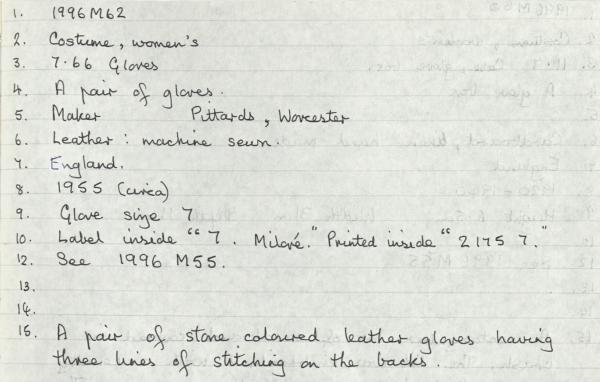 1. 1996M62
2. Costume, women's
3. 7.66 Gloves
4. A pair of gloves.
5. Maker Pittards, Worcester
6. Leather: machine sewn.
7. England.
8. 1955 (circa)
9. Glove size 7
10. Label inside "7. Miloré." Printed inside "2175 7."
12. See 1996 M55.
13.
14.
15. A pair of stone coloured leather gloves having
three lines of stitching on the backs.